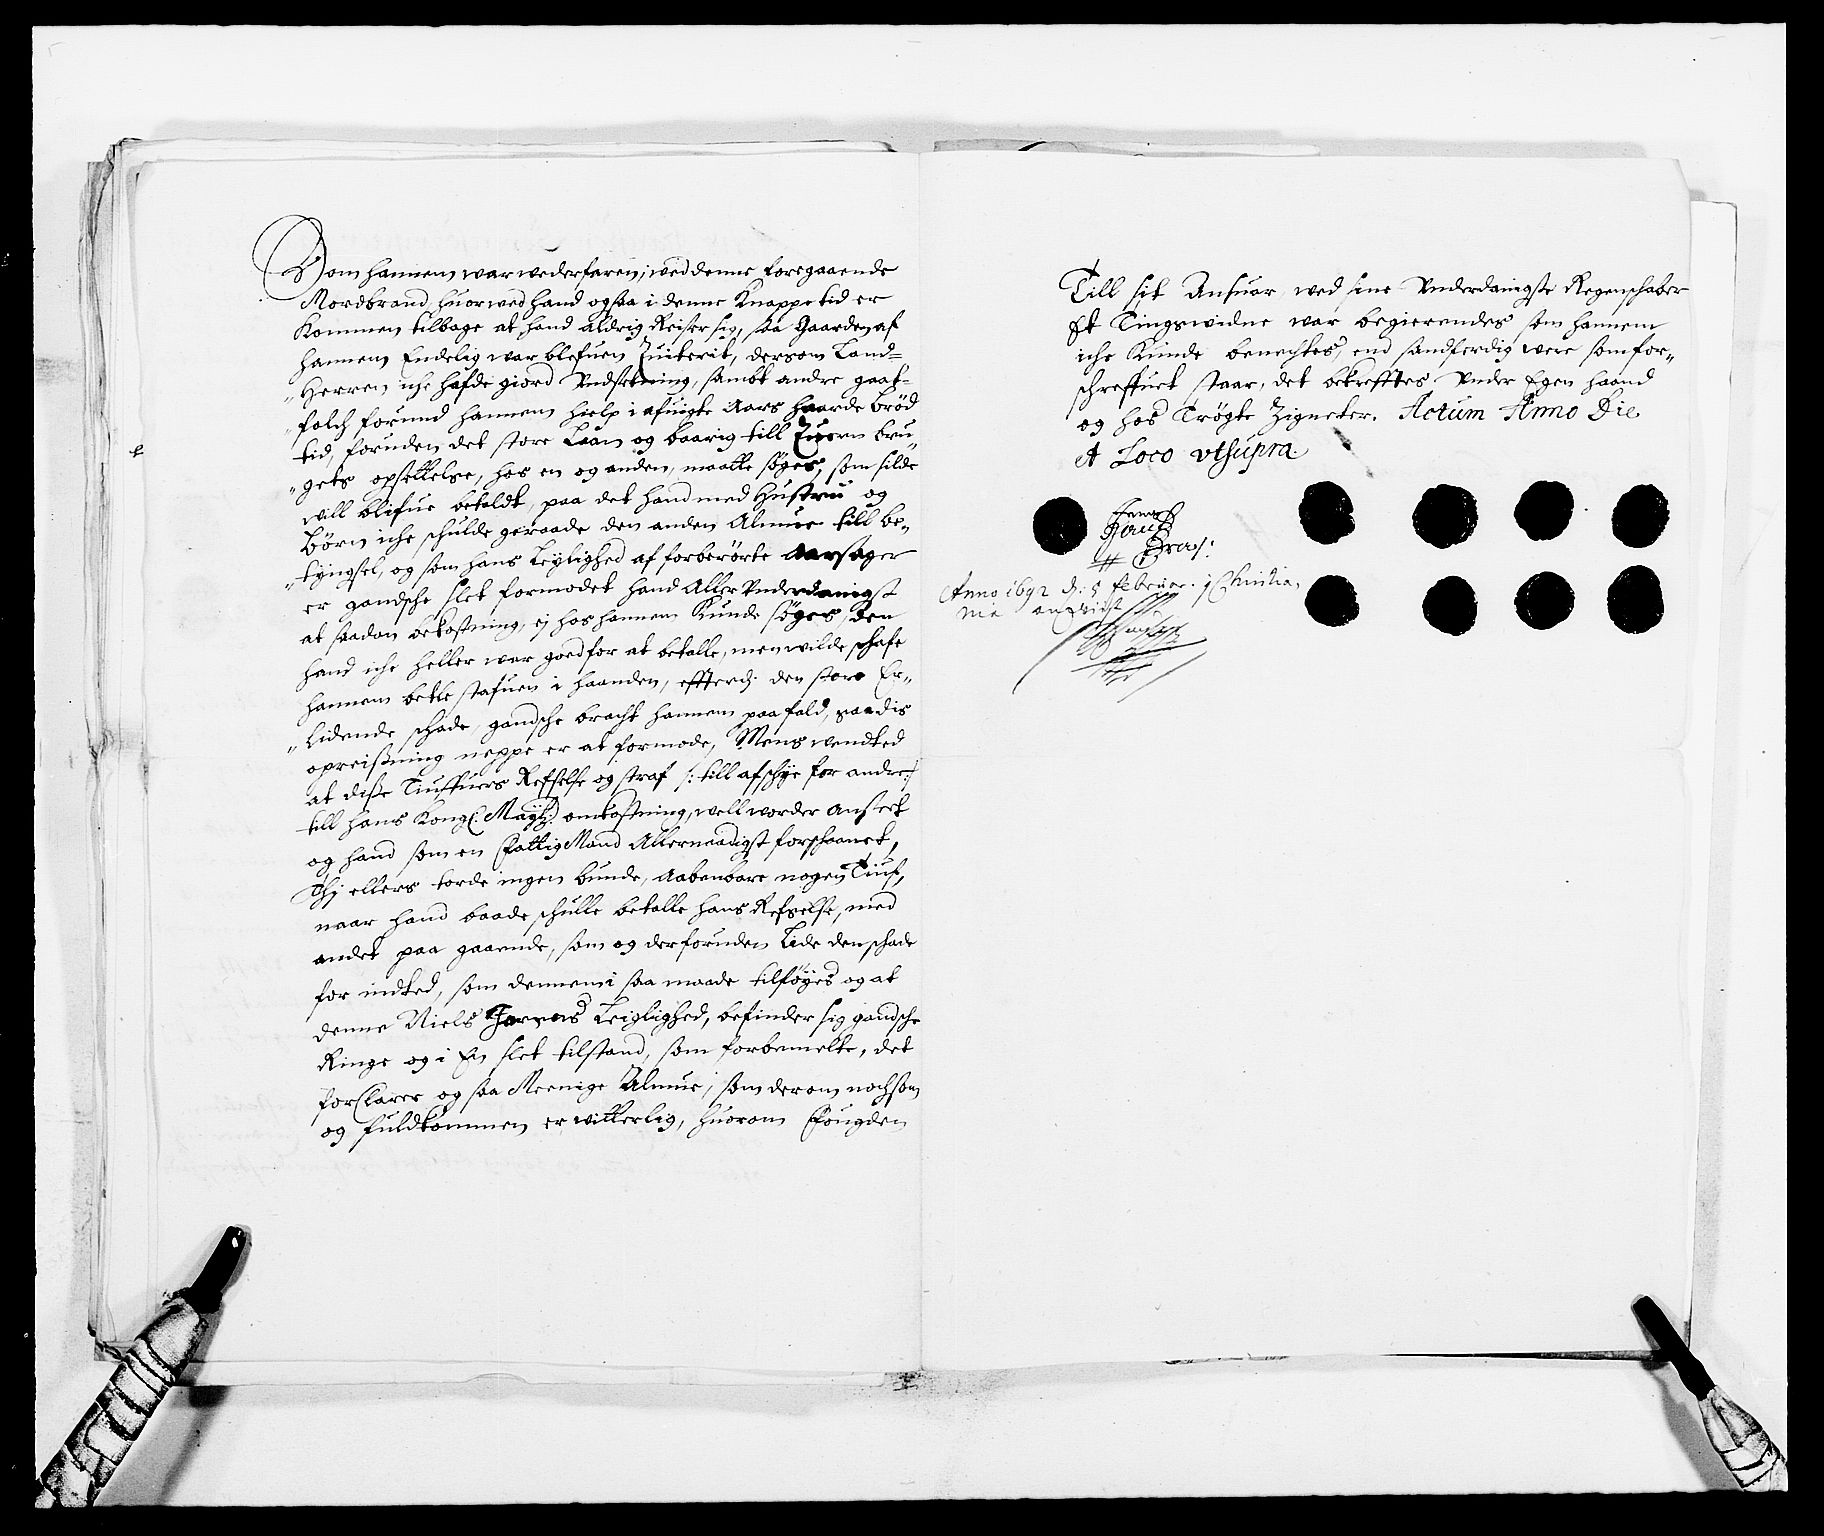 Som hannem war wederfaren, wed denne foregaaende
Mordbrand, huorwed hand ogsaa i denne Knappe tid er
Kommen tilbage at hand aldrig Reiser sig, saa Gaarden af
hannem Endelig war blefuen quiterit, dersom Land-
Herren iche hafde giord Undsetning, sambt andre gaat-
folch forund hannem hielp i afuigte Aars haarde brød
tid, foruden det store Laan og baarig till bru-
gets opsettelse, hos en og anden, maatte søges, som silde
will blifue betaldt, paa det hand med Hustru og
Børn iche schulde geraade den anden Almue till be-
tyngsel, og som hans Leylighed af forberørte Aarsager
er gandsche slet formodet hand Aller Underdanigst
at saadan bekostning, ej hos hannem Kunde søges, den
hand iche heller war goed for at betalle, men wilde schafe
hannem bette stafuen i haanden, effterdj den store Er-
Lidende schade, gandsche bracht hannem paa fald, saa dis
opreißning neppe er at formode, Mens wendted
at diße Tiuffuers Refselse og straf /: till afschye for andre :/
till hans Kongl: Maytz: omkostning, well worder ansert
og hand som en Fattig Mand Allernaadigst forschaanet,
Thj ellers torde ingen bunde, Aabenbare nogen Tiuf,
naar hand baade schulle betalle hans Refselse, med
andet paa gaaende, som og derforuden Lide den schade
for indted, som dennem i saa maade tilføyes og at
denne Niels Leiglighed, befinder sig gandsche
Ringe og i En slet tilstand, som forbemelte, det
forClarer og saa Meenige Almue, som der om nochsom
og fuldkommen er witterlig, huorom Fougden
Till sit Ansuar wed sine Underdanigste Regenschaber
Et Tingswidne war begierendes som hannem
iche Kunde benechtes, end sandferdig were som for-
schreffuet staar, det bekrefftes Under Egen haand
og hos Trøgte Zigneter. Actum Anno Die
et Loco vtsupra.
Anno 1692 d: 5 Februar: j Christia-
nia